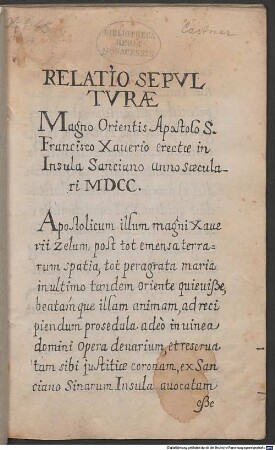 Castner
BIBLIOTHECA
REGIA
MONACENSIS
RELATIO SEPUL
TURÆ
Magno Orientis Apostolo S.
Francisco Xauerio erectæ in
Insula Sanciano anno sæcula-
ri MDCC.
Apostolicum illum magni Xaue
rii Zelum, post tot emensa terra-
rum spatia, tot peragrata maria
in ultimo tandem Oriente quieuiße,
beatam que illam animam, ad reci
piendum pro sedula adeo in uinea
domini Opera denarium et reserua
tam sibi justitiæ coronam, ex San
ciano Sinarum Insula auocatam
eße